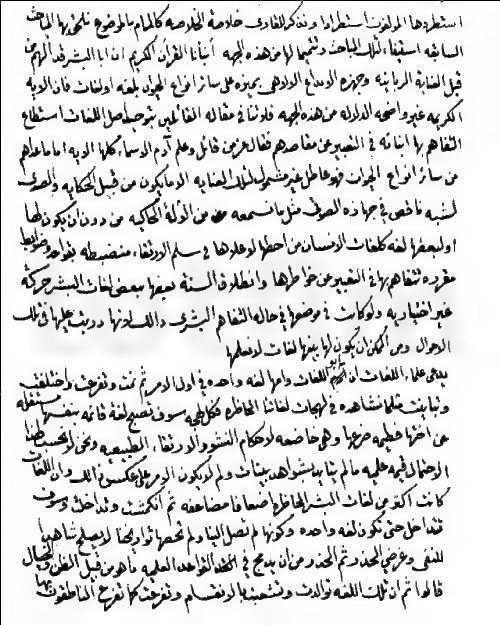 استطردها المؤلفون استطرادا ونذكر للقارئ خلاصة الخلاصه كالمام بالموضوع نلحق بها المباحث
السابقه استيفاء لتلك المباحث وتتميما لها من هذه الجهه أنبأنا القرآن الكريم ان ابا البشر قد الهم من
قبل العناية الربانيه وجهزه الابداع الالاهي بميزه على سائر انواع الحيوان بلغه اولغات فان الايه
الكريمه غير واضحه الدلوله من هذه الجهه فلذتنا في مقاله القائلين بتوحيد اصل اللغات استطاع
التفاهم بها ابنائه في التعبير عن مقاصدهم فقال عز من قائل وعلم آدم الاسماء كلها الايه اما ما عداهم
من سائر انواع الحيوان فهو عاطل غير مشمول لتلك العنايه الا ما يكون من قبيل الحكايه والصدى
لشبه ناقص في جهازه الصوتي مثل ما نسمعه من الآلة الحاكيه من دون ان يكون لها
او لبعضها لغه كلغات الانسان من احطها لاعلاها في سلم الارتقاء منضبطه بقواعد وضوابط
مقرره تتفاهم بها في التعبير عن خواطرها وانطلاق السنة بعضها ببعض لغات البشر حركة
غير اختياريه ولو كانت في موضعها في حاله التفاهم البشري ذلك لانها دربت عليها في تلك
الاحوال ومن الممكن ان يكون لها بينها لغات لا نعلمها
يدعى علماء اللغات ان اللغات وامها لغه واحده في اول الامر ثم نمت وتفرعت واختلفت
وتباينت مثلما نشاهده في لهجات لغاتنا الحاضره فكل لهجه سوف تصبح لغة قائمه بنفسها مستقله
عن اختها فطيمه ضرعها وهي خاضعه لاحكام النشوء والارتقاء الطبيعيه ونحن لا نحسب لهذا
الاحتمال قيمه علميه مالم يتايد بشواهد بينات ولم لا يكون الامر على عكس ذلك وان اللغات
كانت اكثر من لغات البشر الحاضره اضعافا مضاعفه ثم انكمشت وتداخلت وسوف
تتداخل حتى تكون لغه واحده وكونها لم تصل الينا ولم تحصها تواريخنا لا يصلح شاهدا
للنفي وغرضي الحذر ثم الحذر من ان يدمج في القواعد العلميه ما هو من قبيل الظن والخيال
قالوا ثم ان تلك اللغه توالدت وتشعبت بالانقسام وتفرعت كما تفرع الناطقون بها